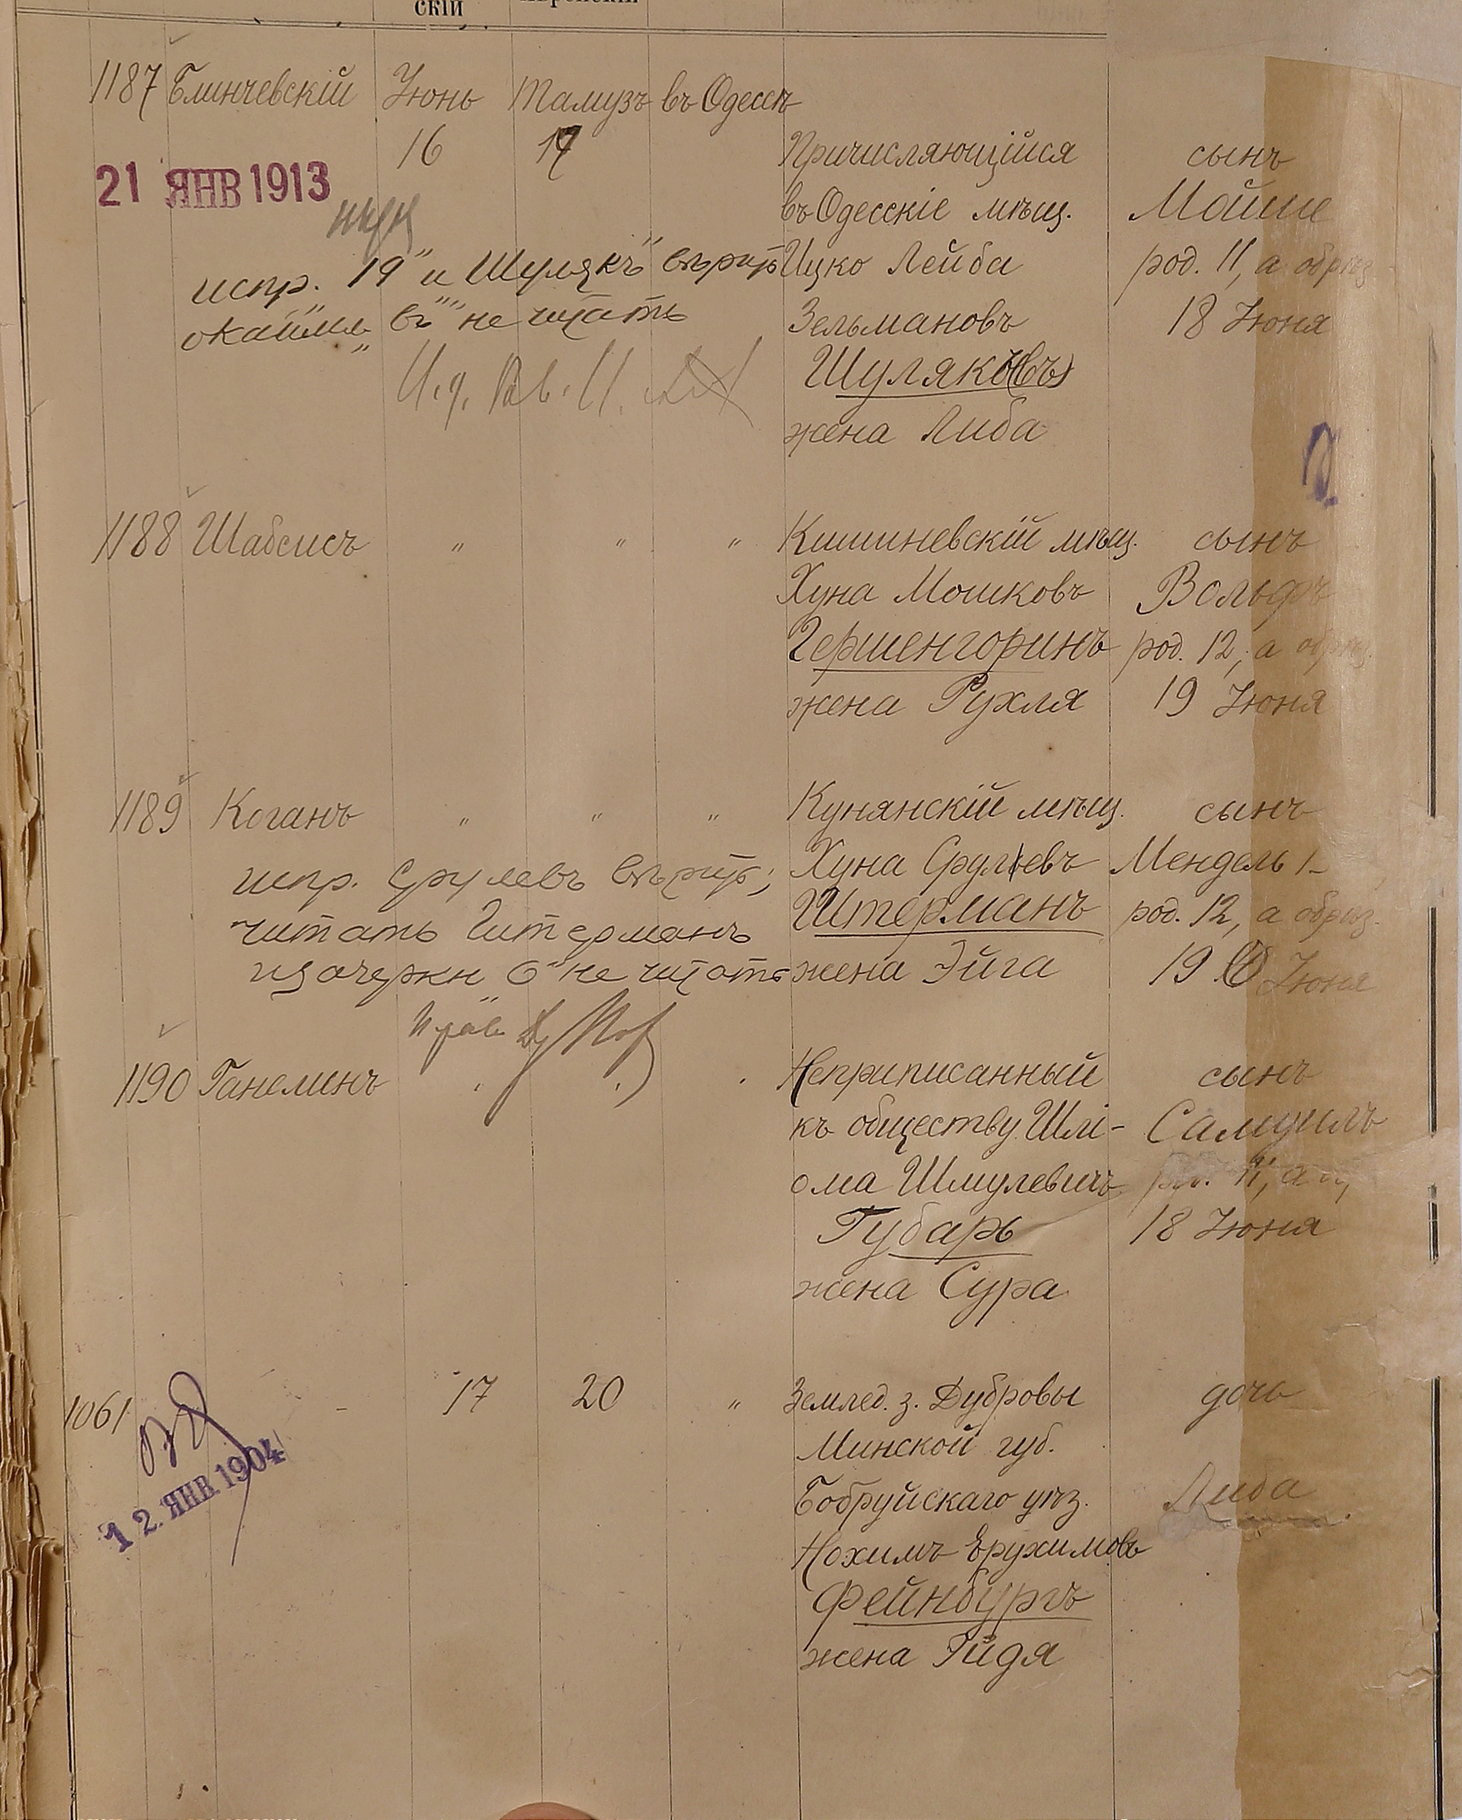 скій
1187 Блинчевскій Іюнь Тамузъ въ Одессѣ
16 19
Причисляющійся
въ Одесскіе мѣщ.
Ицко Лейба
Зельмановъ
Шулякъ(въ)
жена Либа
сынъ
Мойше
род. 11, а обрѣз.
18 Іюня
21 ЯНВ 1913
испр. "19" и "Шулякъ" вѣрить
"въ" не читать
1188 Шабсисъ " " "
Кишиневскій мѣщ.
Хуна Мошковъ
Гершенгоринъ
жена Рухля
сынъ
Вольфъ
род. 12, а обрѣз.
19 Іюня
1189 Коганъ " " "
Кунянскій мѣщ.
Хуна Срулевъ
Штерманъ
жена Эйга
сынъ
Мендель
род. 12, а обрѣз.
19 Іюня
испр. Срулевъ вѣрить;
читать Гитерманъ
не читать
1190 Ганелинъ
Неприписанный
къ обществу Шлі-
ома Шмулевичъ
Губарь
жена Сура
сынъ
Самуилъ
род. 11, а
18 Іюня
1061 - 17 20 "
Землед. з. Дубровы
Минской губ.
Бобруйскаго уѣз.
Нохимъ Ерухимовъ
Фейнбургъ
жена Гйдя
дочь
Либа
12. ЯНВ. 1904